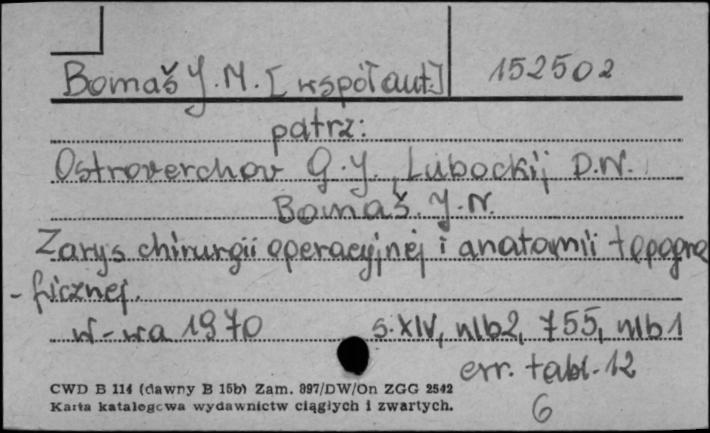 Bomaš J. M. [współaut.] 152502
patrz:
Ostroverchov G. J., Lubockij D. N.
Bomaš. J. N.
Zarys chirurgii operacyjnej i anatomii topogra
-ficznej.
W-wa 1970 s. XIV, nlb2, 755, nlb1
err. tabl. 12
CWD B 114 (dawny B 15b) Zam. 897/DW/On ZGG 2542
Karta katalogowa wydawnictw ciągłych i zwartych.
6